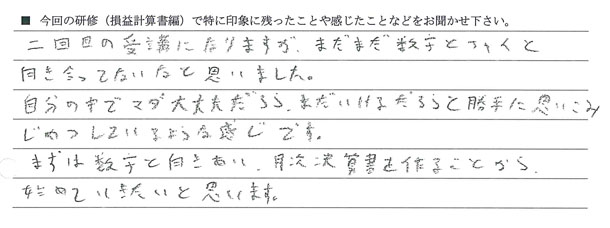 ■ 今回の研修（損益計算書編）で特に印象に残ったことや感じたことなどをお聞かせ下さい。
二回目の受講になりますが、まだまだ数字とちゃんと
向き合ってないなと思いました。
自分の中でマダ大丈夫だろう、まだいけるだろうと勝手に思いこみ
しているような感じです。
まずは数字と向きあい、月次決算書を作ることから、
始めていきたいと思います。